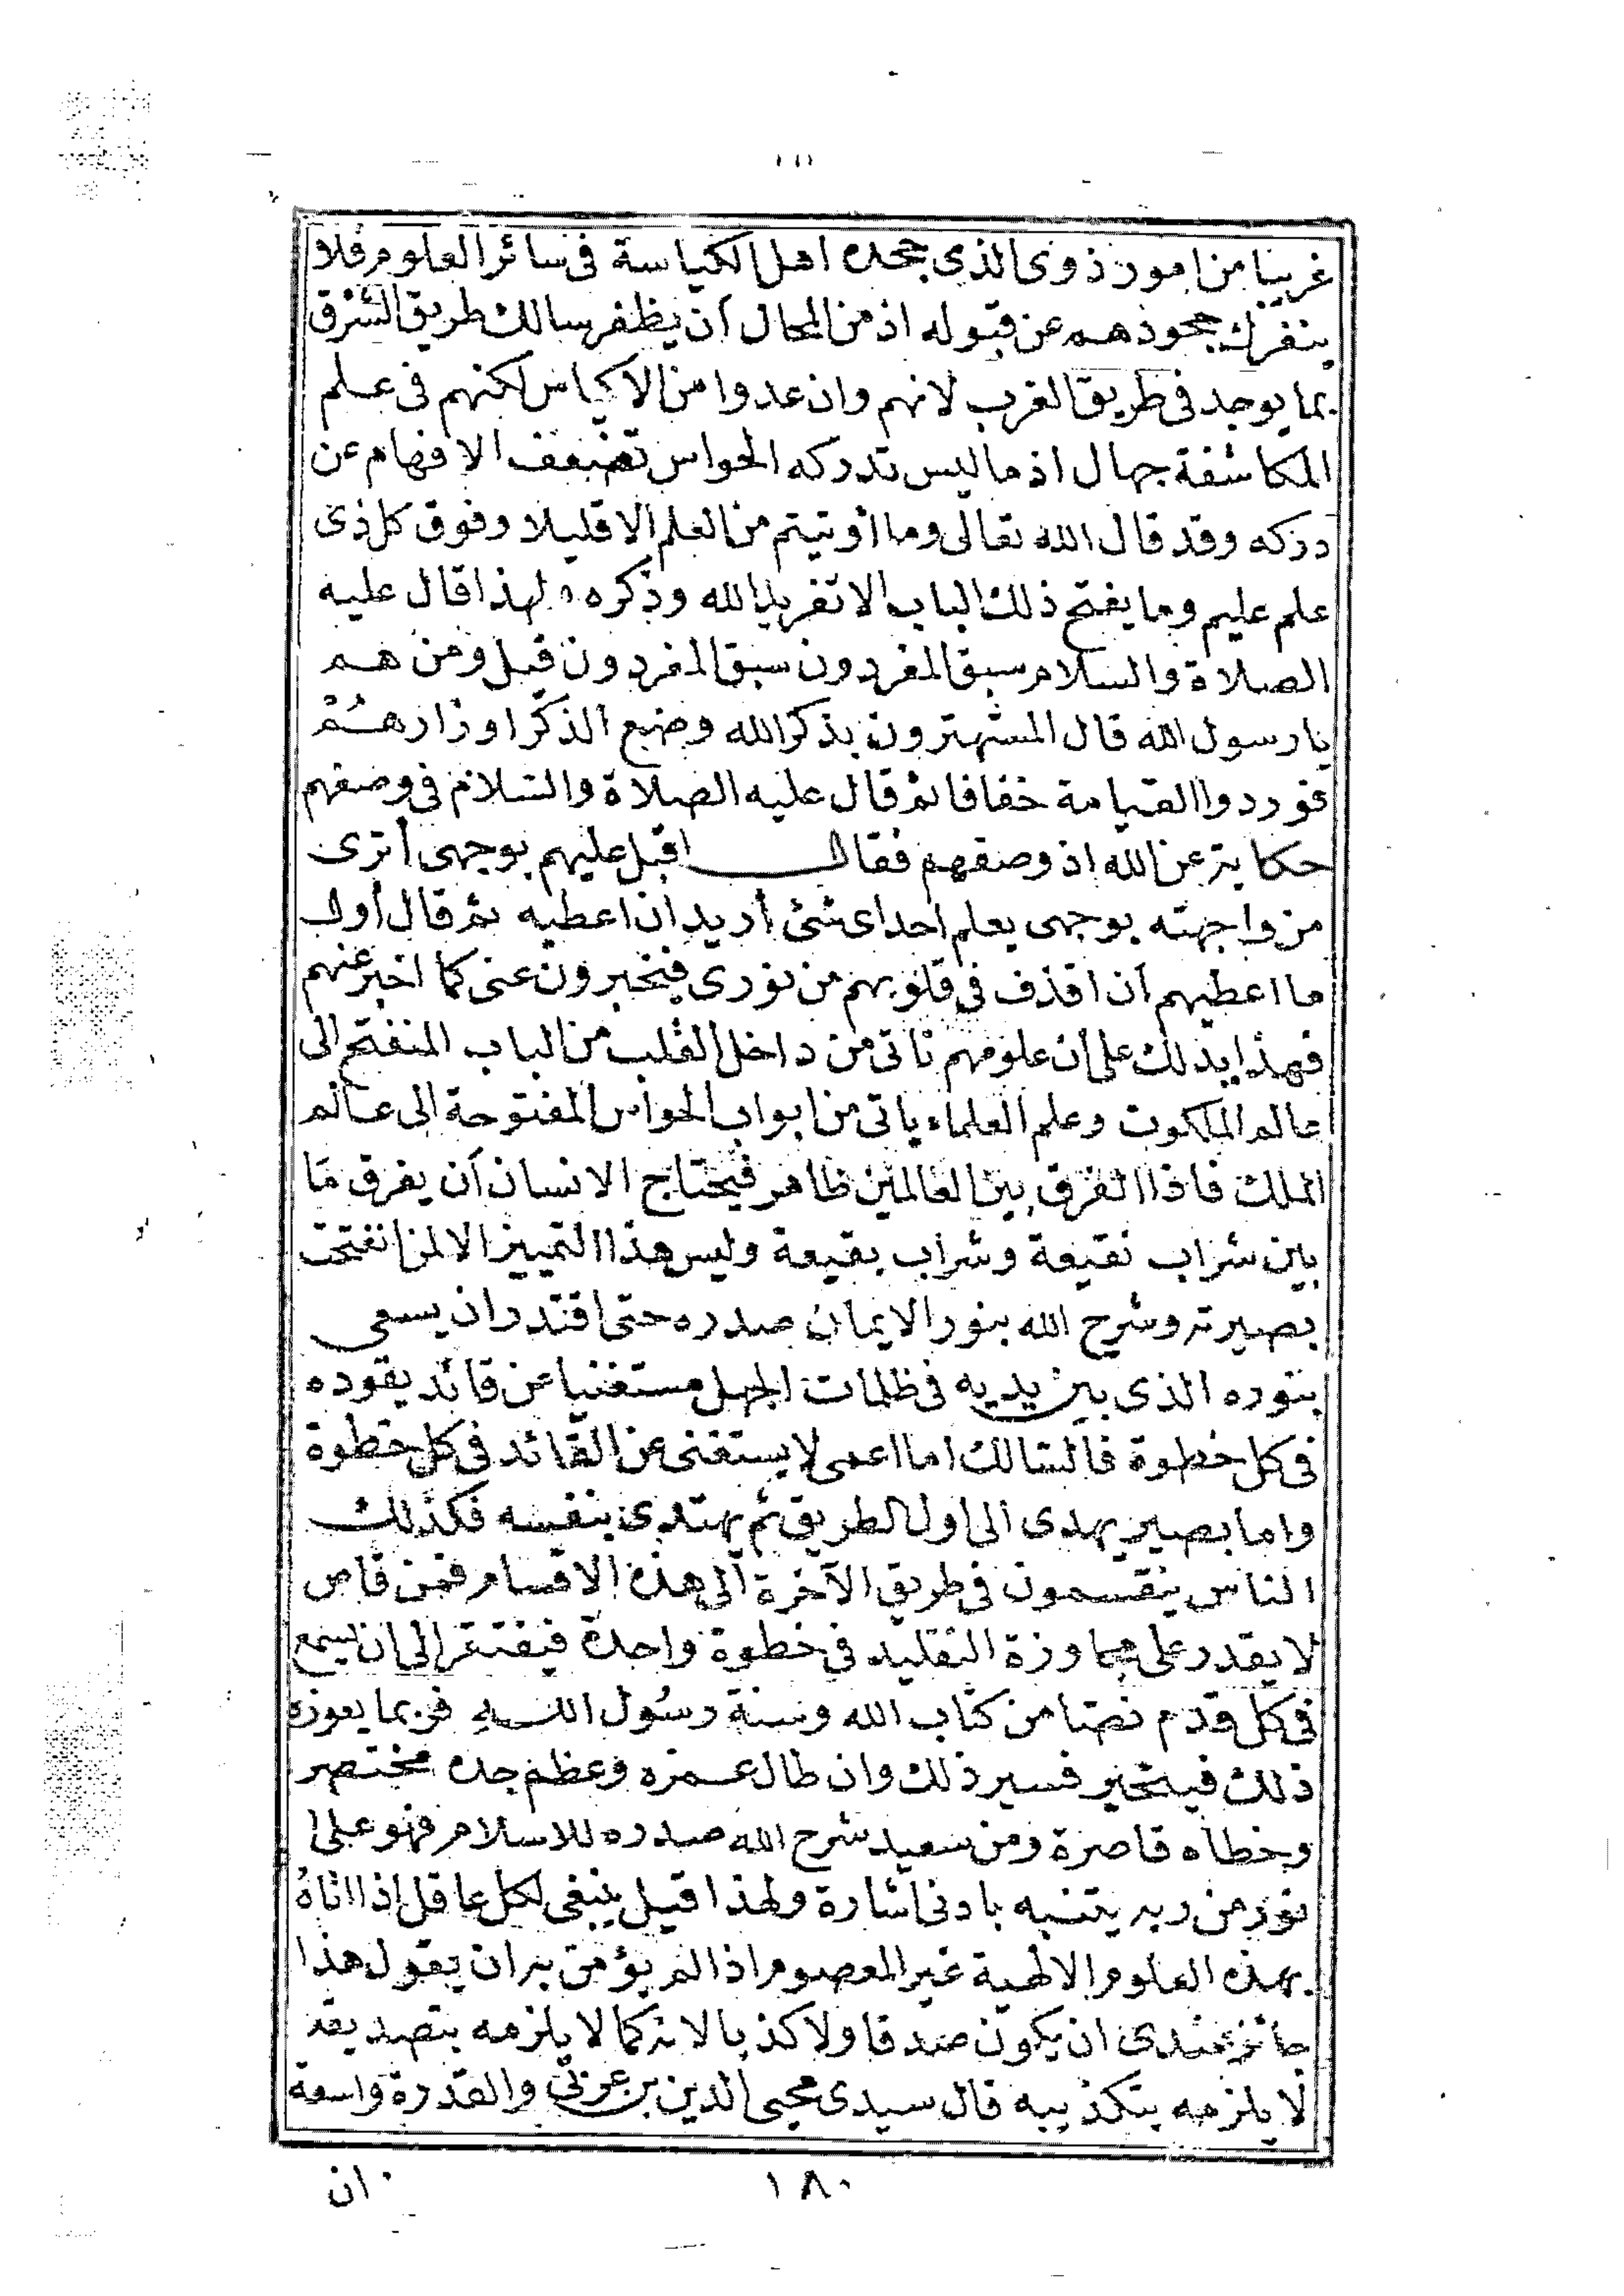 غريبا من امور ذوى الذى جحده اهل الكياسة فى سائر العلوم فلا
ينفرك جحودهم عن قبوله اذ من المحال أن يظفر سالك طريق الشرق
بما يوجد فى طريق الغرب لانهم وان عدوا من الاكياس لكنهم فى علم
المكاشفة جهال اذ ما ليس تدركه الحواس تضعف الافهام عن
دركه وقد قال الله تعالى وما أوتيتم من العلم الا قليلا وفوق كل ذى
علم عليم وما يفتح ذلك الباب الا تفريد الله وذكره ولهذا قال عليه
الصلاة والسلام سبق المفردون سبق المفردون قيل ومن هم
يا رسول الله قال المستهترون بذكر الله وضع الذكر اوزارهم
فوردوا القيامة خفافا ثم قال عليه الصلاة والسلام فى وصفهم
حكاية عن الله اذ وصفهم فقال اقبل عليهم بوجهى أترى
من واجهته بوجهى يعلم احد اى شئ أريد ان اعطيه ثم قال أول
ما اعطيهم أن اقذف فى قلوبهم من نورى فيخبرون عنى كما اخبر عنهم
فهذا يدلك على أن علومهم تأتى من داخل القلب من الباب المنفتح الى
عالم الملكوت وعلم العلماء ياتى من ابواب الحواس المفتوحة الى عالم
الملك فاذا الفرق بين العالمين ظاهر فيحتاج الانسان أن يفرق ما
بين شراب نقيعة وشراب بقيعة وليس هذا التمييز الا لمن انفتحت
بصيرته وشرح الله بنور الايمان صدره حتى اقتدر ان يسعى
بنوره الذى بين يديه فى ظلمات الجهل مستغنيا عن قائد يقوده
فى كل خطوة فالسالك اما اعمى لا يستغنى عن القائد فى كل خطوة
واما بصير يهدى الى اول الطريق ثم يهتدى بنفسه فكذلك
الناس ينقسمون فى طريق الآخرة الى هذه الاقسام فمن قاصر
لا يقدر على مجاوزة التقليد فى خطوة واحدة فيفتقر الى ان يسمع
فى كل قدم نصا من كتاب الله وسنة رسول الله فربما يعوزه
ذلك فيتحير فسير ذلك وان طال عمره وعظم جده مختصر
وخطاه قاصرة ومن سعيد شرح الله صدره للاسلام فهو على
نور من ربه يتنبه بادنى اشارة ولهذا قيل ينبغى لكل عاقل اذا اتاه
بهذه العلوم الالهية غير المعصوم اذا لم يؤمن به ان يقول هذا
جائز عندى ان يكون صدقا ولا كذبا لانه كما لا يلزمه بتصديقه
لا يلزمه بتكذيبه قال سيدى محيى الدين بن عربى والقدرة واسعة
ان
١٨٠